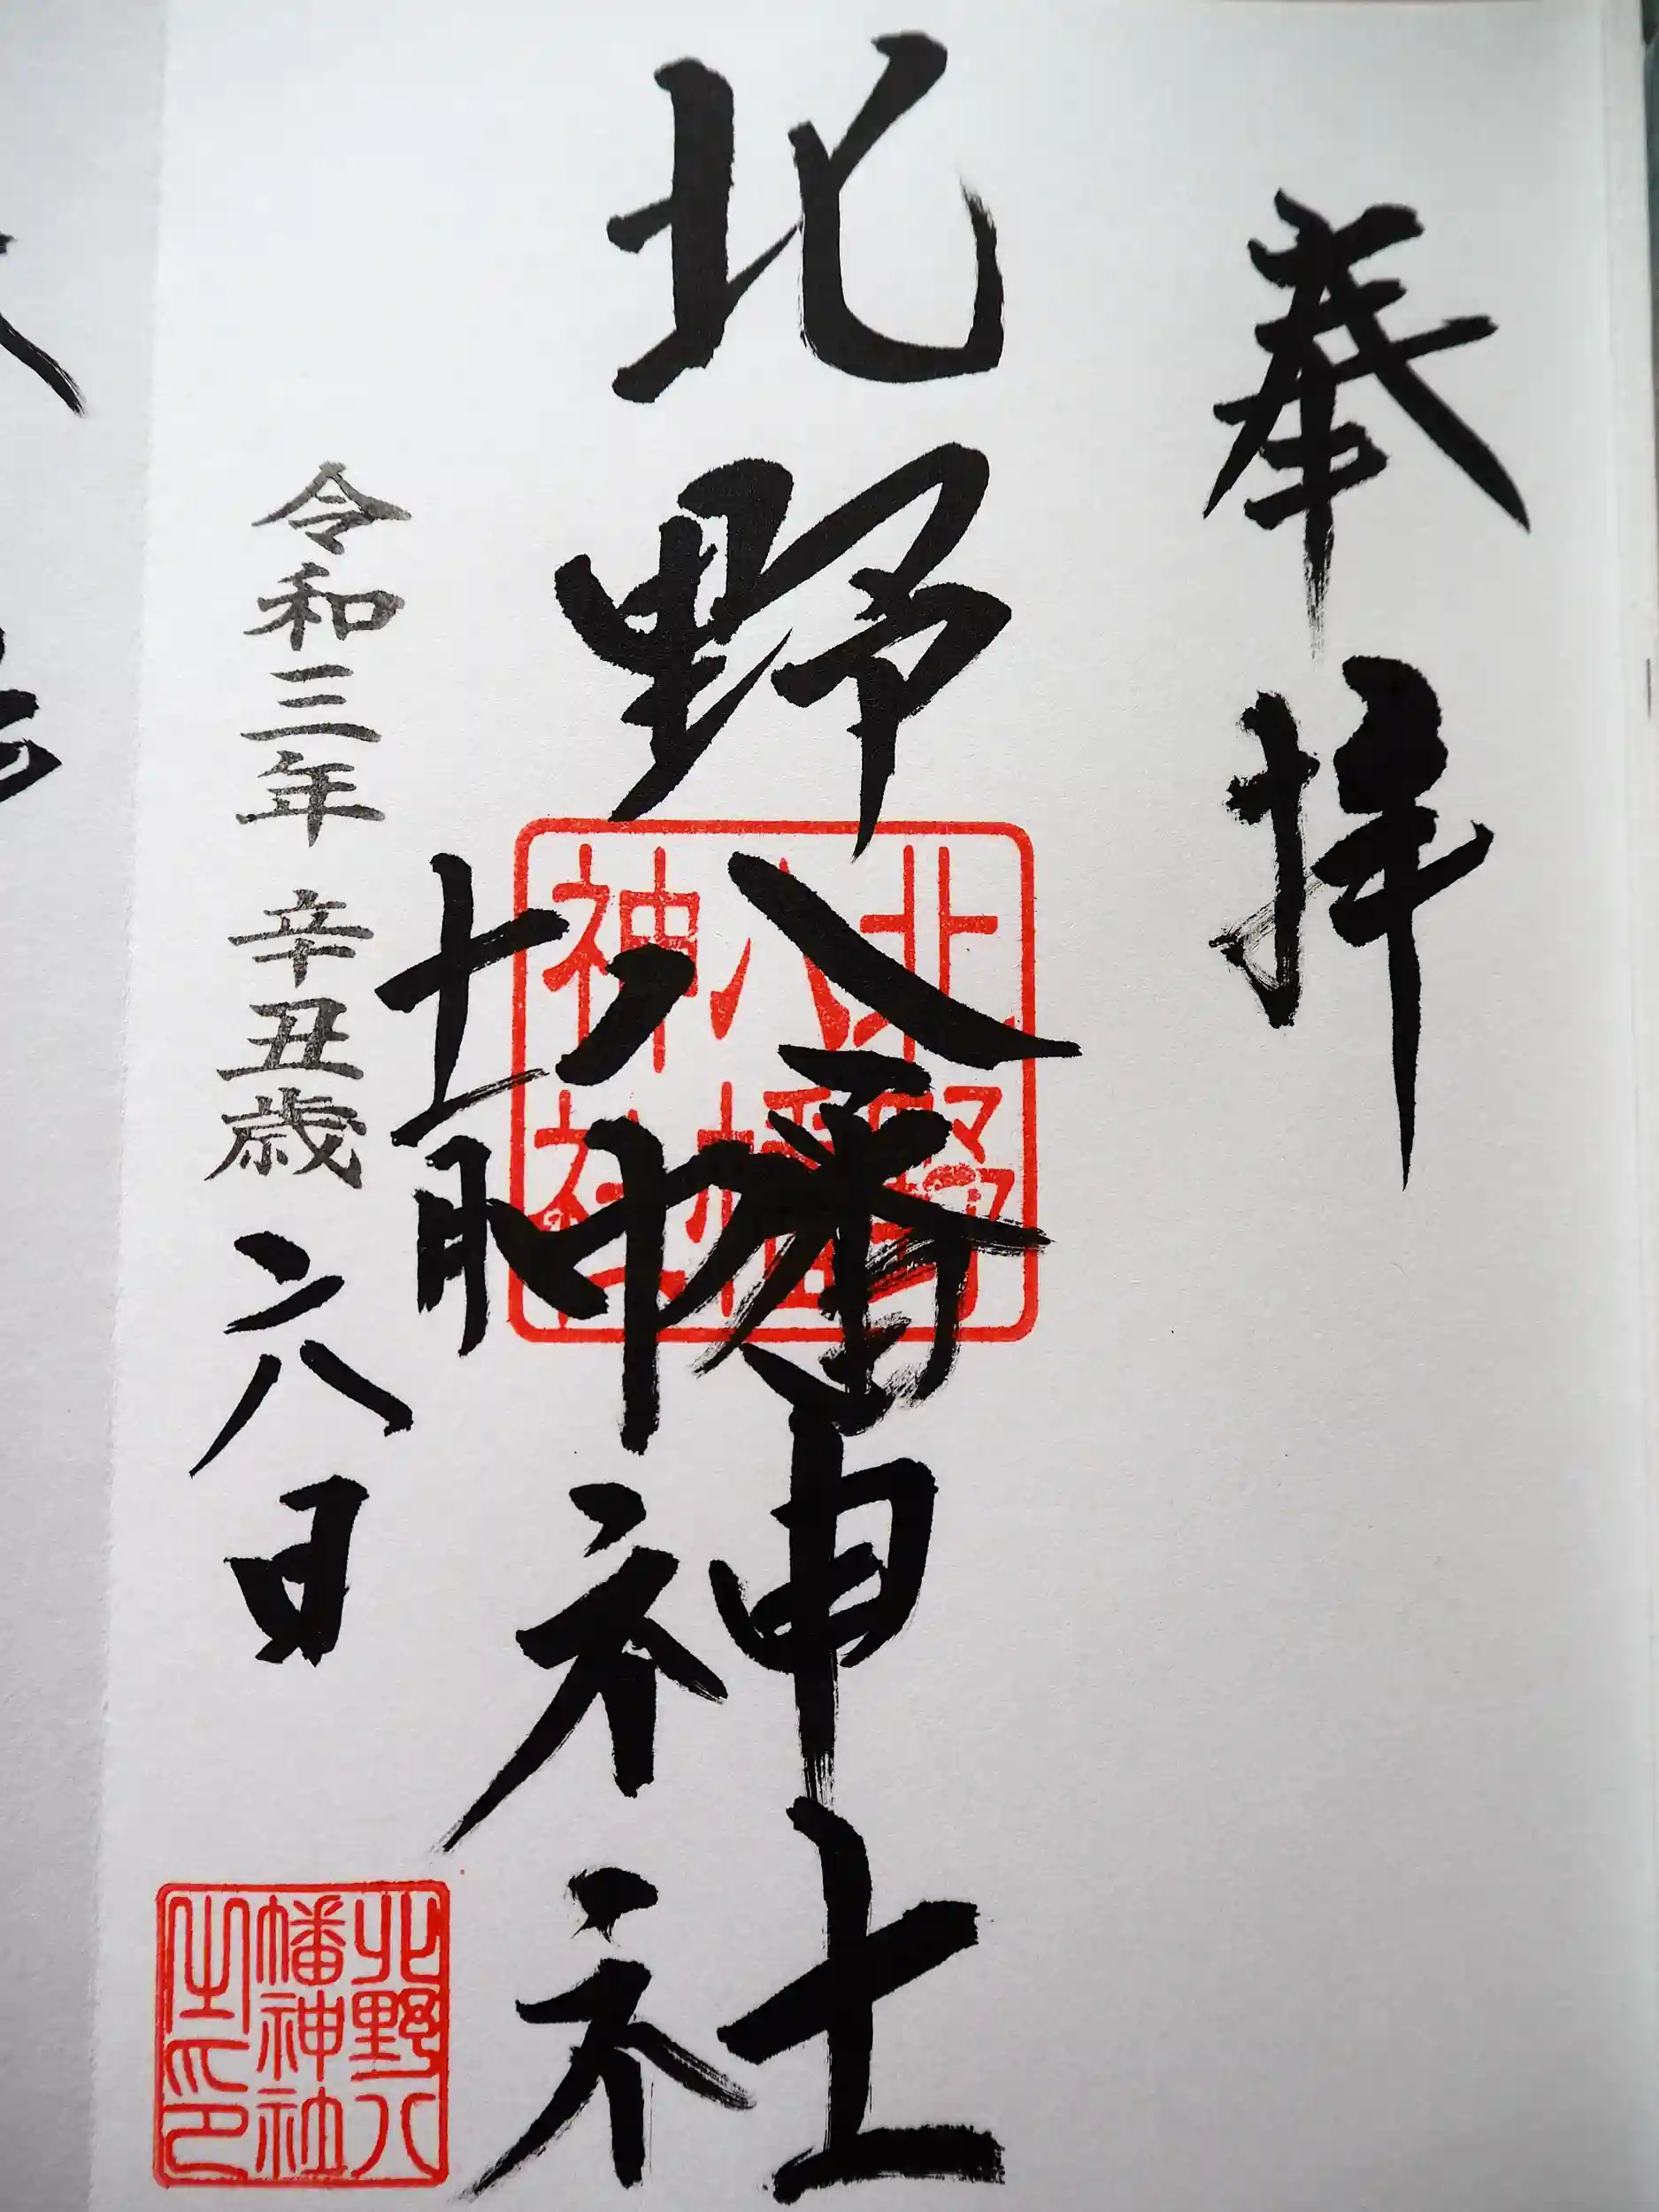 奉拝
北野八幡神社
北野
八幡
神社
令和三年 辛丑歳 十一月二八日
北野八
幡神社
之印